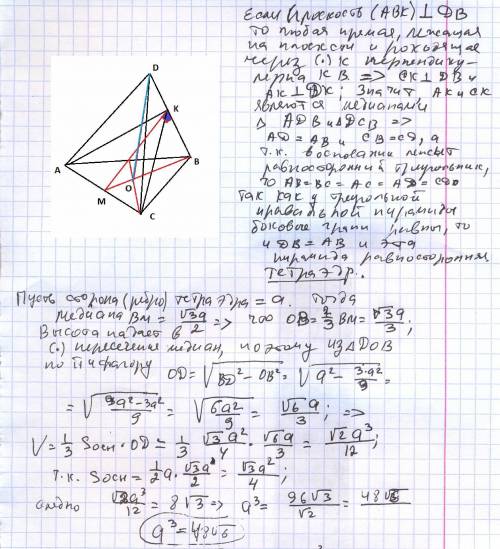 D
K
A
B
O
M
C
Если плоскость (ABK) ⊥ DB
то любая прямая, лежащая
на плоскости и проходящая
через (·) K перпендику-
лярна KB => CK ⊥ DB и
AK ⊥ DK; Значит AK и CK
являются медианами
Δ ADB и ΔDCB =>
AD = AB и CB = CD, а
т.к. в основании лежит
равносторонний треугольник,
то AB = BC = AC = AD = CD
так как у треугольной
правильной пирамиды
боковые грани равны, то
и DB = AB и эта
пирамида равносторонняя
тетраэдр.
Пусть сторона (ребро) тетраэдра = a. тогда
медиана BM = √3a/2 => что OB = 2/3 BM = √3a/3;
Высота падает в
(·) пересечения медиан, поэтому из ΔDOB
по Пифагору OD = √(BD² - OB²) = √(a² - 3·a²/9) =
= √((9a² - 3a²)/9) = √(6a²/9) = √6a/3; =>
V = 1/3 Sосн · OD = 1/3 · √3a²/4 · √6a/3 = √2a³/12;
т.к. Sосн = 1/2 a · √3a/2 = √3a²/4;
следно √2a³/12 = 8√3 => a³ = 96√3/√2 = 48√6
a³ = 48√6